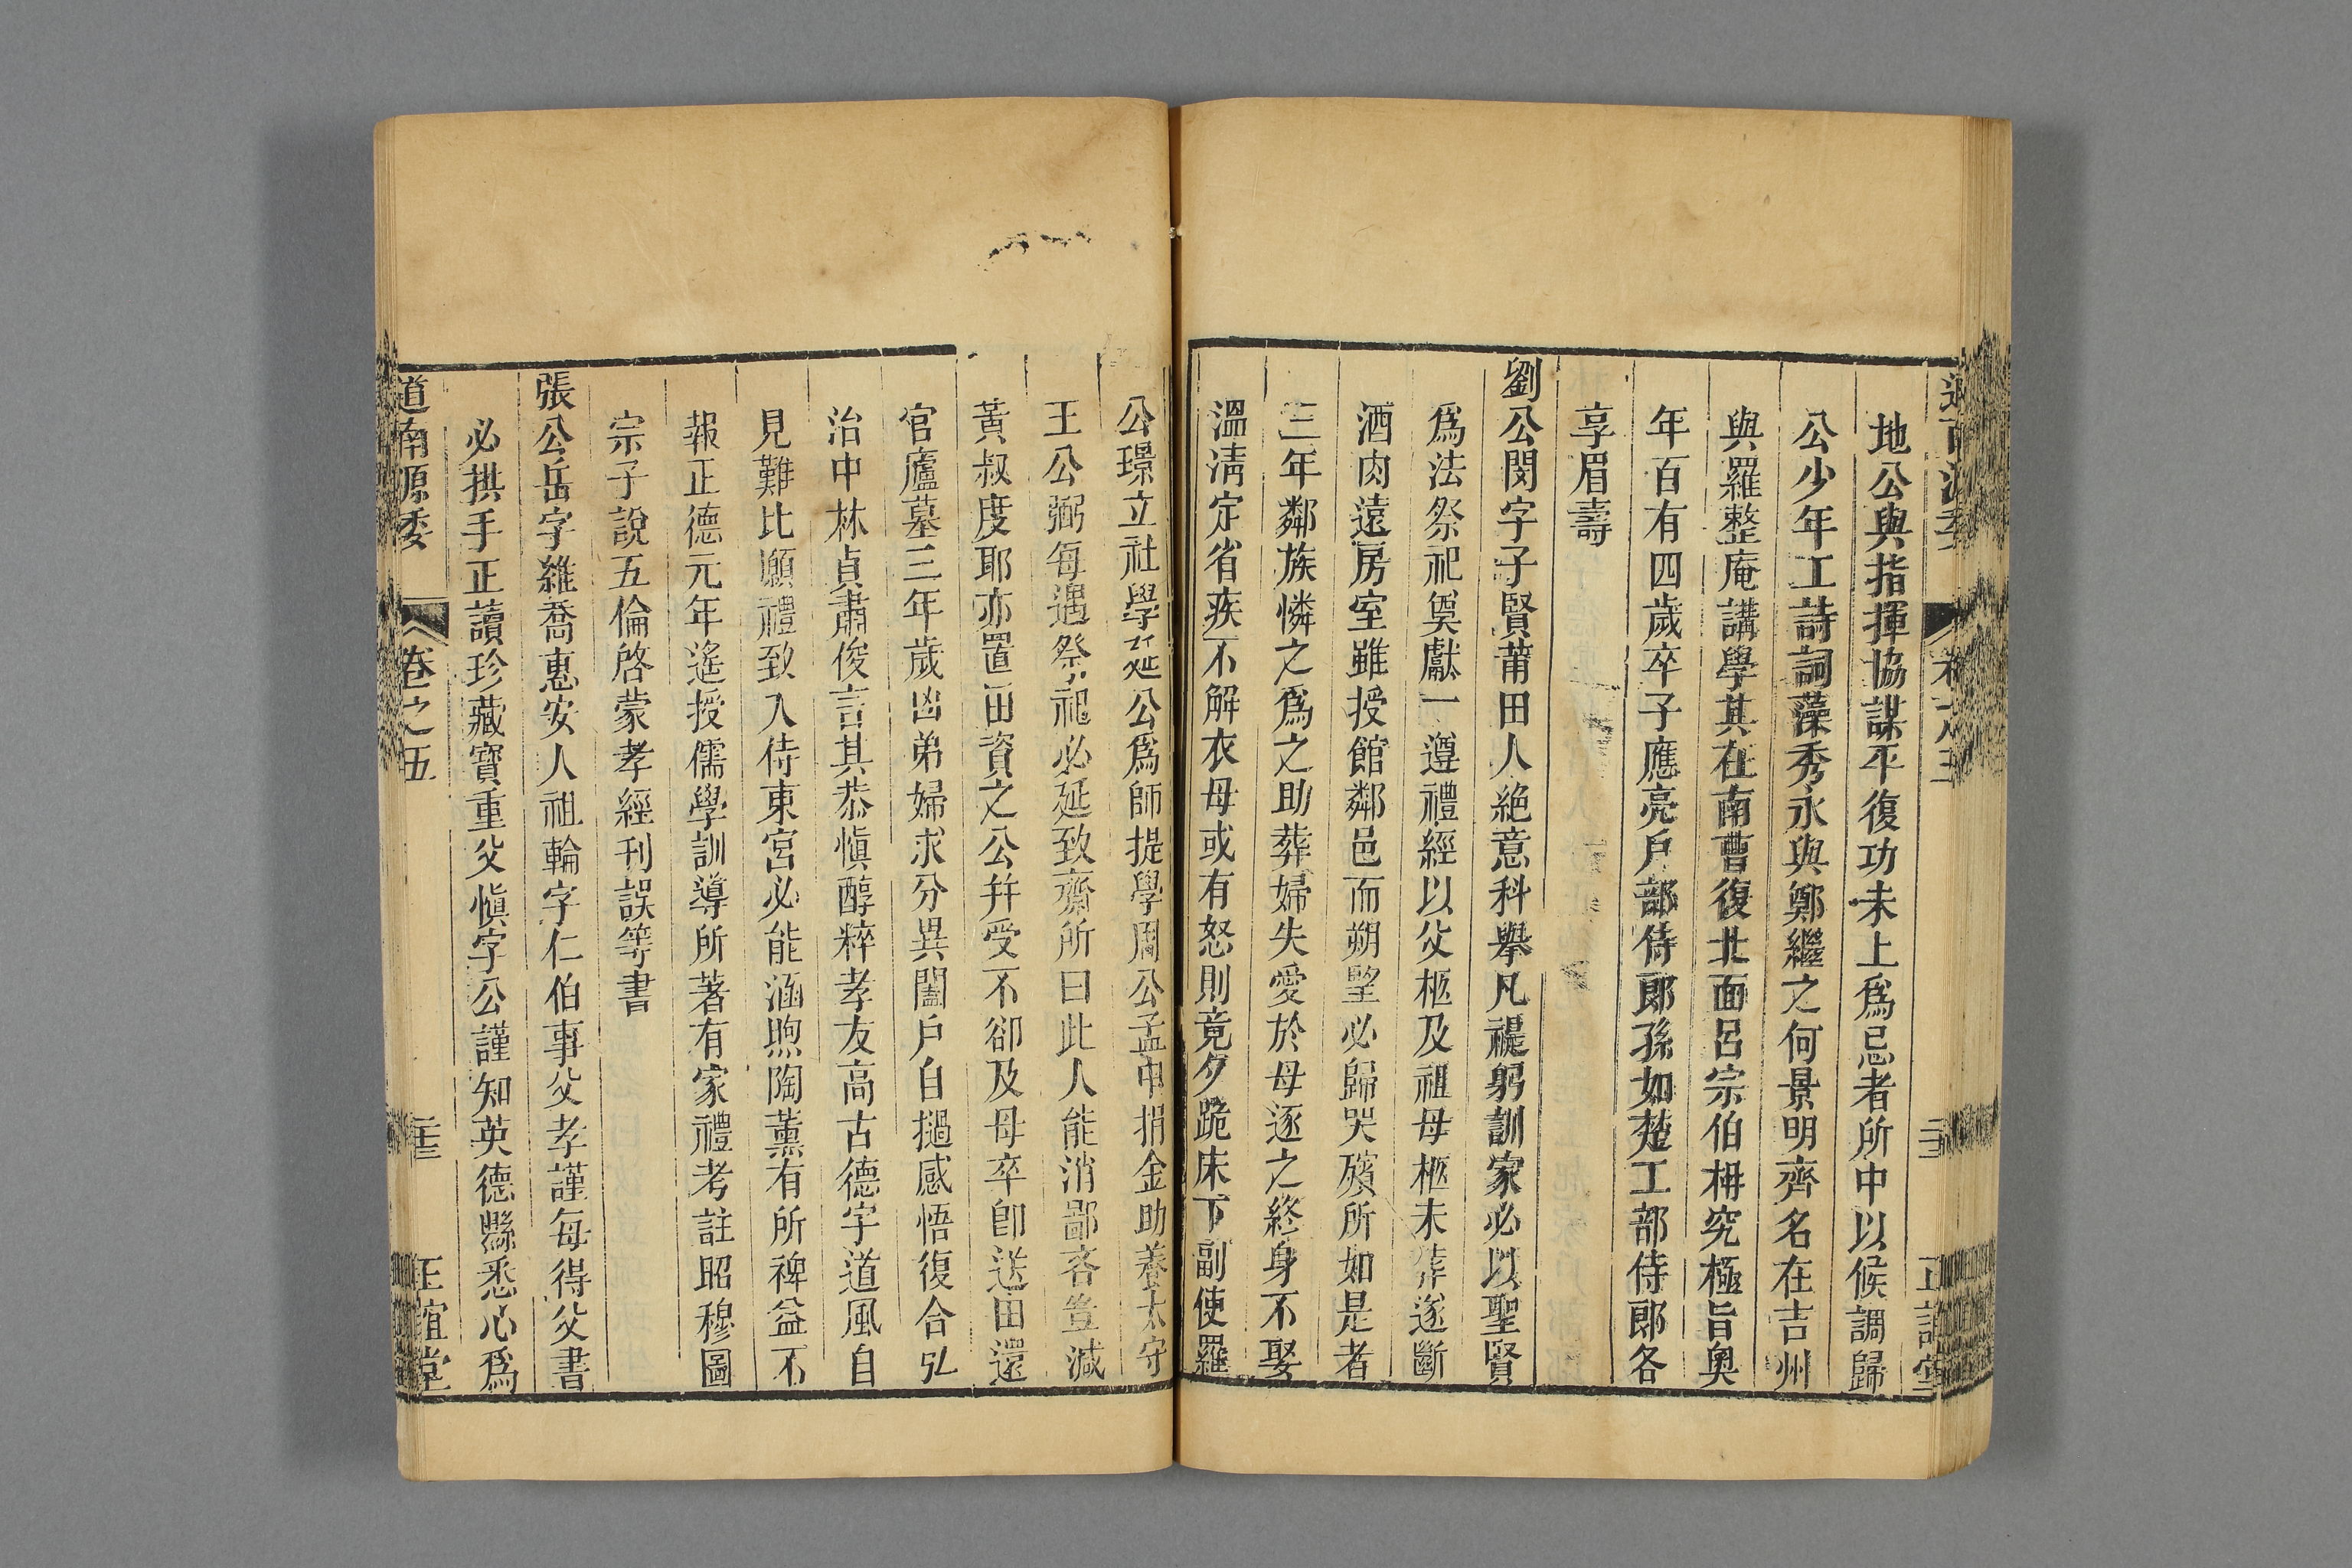 地公與指揮協謀平復功未上爲忌者所中以候調歸
公少年工詩詞藻秀永與鄭繼之何景明齊名在吉州
與羅整庵講學其在南曹復北面呂宗伯柟究極旨奥
年百有四歲卒子應亮戶部侍郎孫如楚工部侍郎各
享眉壽
劉公閔字子賢莆田人絶意科舉凡禔躬訓家必以聖賢
爲法祭祀奠獻一遵禮經以父柩及祖母柩未葬遂斷
酒肉遠房室雖授館鄰邑而朔望必歸哭殯所如是者
三年鄰族憐之爲之助葬婦失愛於母逐之終身不娶
溫凊定省疾不解衣母或有怒則竟夕跪床下副使羅
公璟立社學延公爲師提學周公孟中捐金助養太守
王公弼每遇祭祀必延致齋所曰此人能消鄙吝豈減
黃叔度耶亦置田資之公幷受不卻及母卒卽送田還
官廬墓三年歲凶弟婦求分異闔戶自撾感悟復合弘
治中林貞肅俊言其恭愼醇粹孝友高古德宇道風自
見難比願禮致入侍東宮必能涵煦陶薰有所裨益不
報正德元年遙授儒學訓導所著有家禮考註昭穆圖
宗子說五倫啓蒙孝經刊誤等書
張公岳字維喬惠安人祖輪字仁伯事父孝謹每得父書
必拱手正讀珍藏寶重父愼字公謹知英德縣悉心爲
道南源委 卷之五 二十三 正誼堂